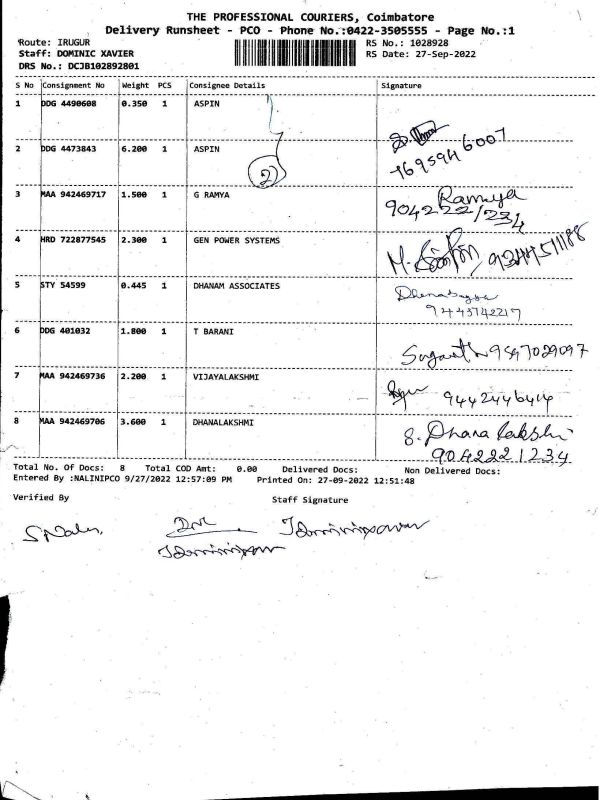 THE PROFESSIONAL COURIERS, Coimbatore
Delivery Runsheet - PCO - Phone No.:0422-3505555 - Page No.:1
Route: IRUGUR
Staff: DOMINIC XAVIER
DRS No.: DCJB102892801
RS No.: 1028928
RS Date: 27-Sep-2022
S No Consignment No Weight PCS Consignee Details Signature
1 DDG 4490608 0.350 1 ASPIN
2 DDG 4473843 6.200 1 ASPIN
2
3 MAA 942469717 1.500 1 G RAMYA Ramya
4 HRD 722877545 2.300 1 GEN POWER SYSTEMS
5 STY 54599 0.445 1 DHANAM ASSOCIATES
9443742217
6 DDG 401032 1.800 1 T BARANI
7 MAA 942469736 2.200 1 VIJAYALAKSHMI
9442446414
8 MAA 942469706 3.600 1 DHANALAKSHMI
9042221234
Total No. Of Docs: 8 Total COD Amt: 0.00 Delivered Docs: Non Delivered Docs:
Entered By :NALINIPCO 9/27/2022 12:57:09 PM Printed On: 27-09-2022 12:51:48
Verified By Staff Signature